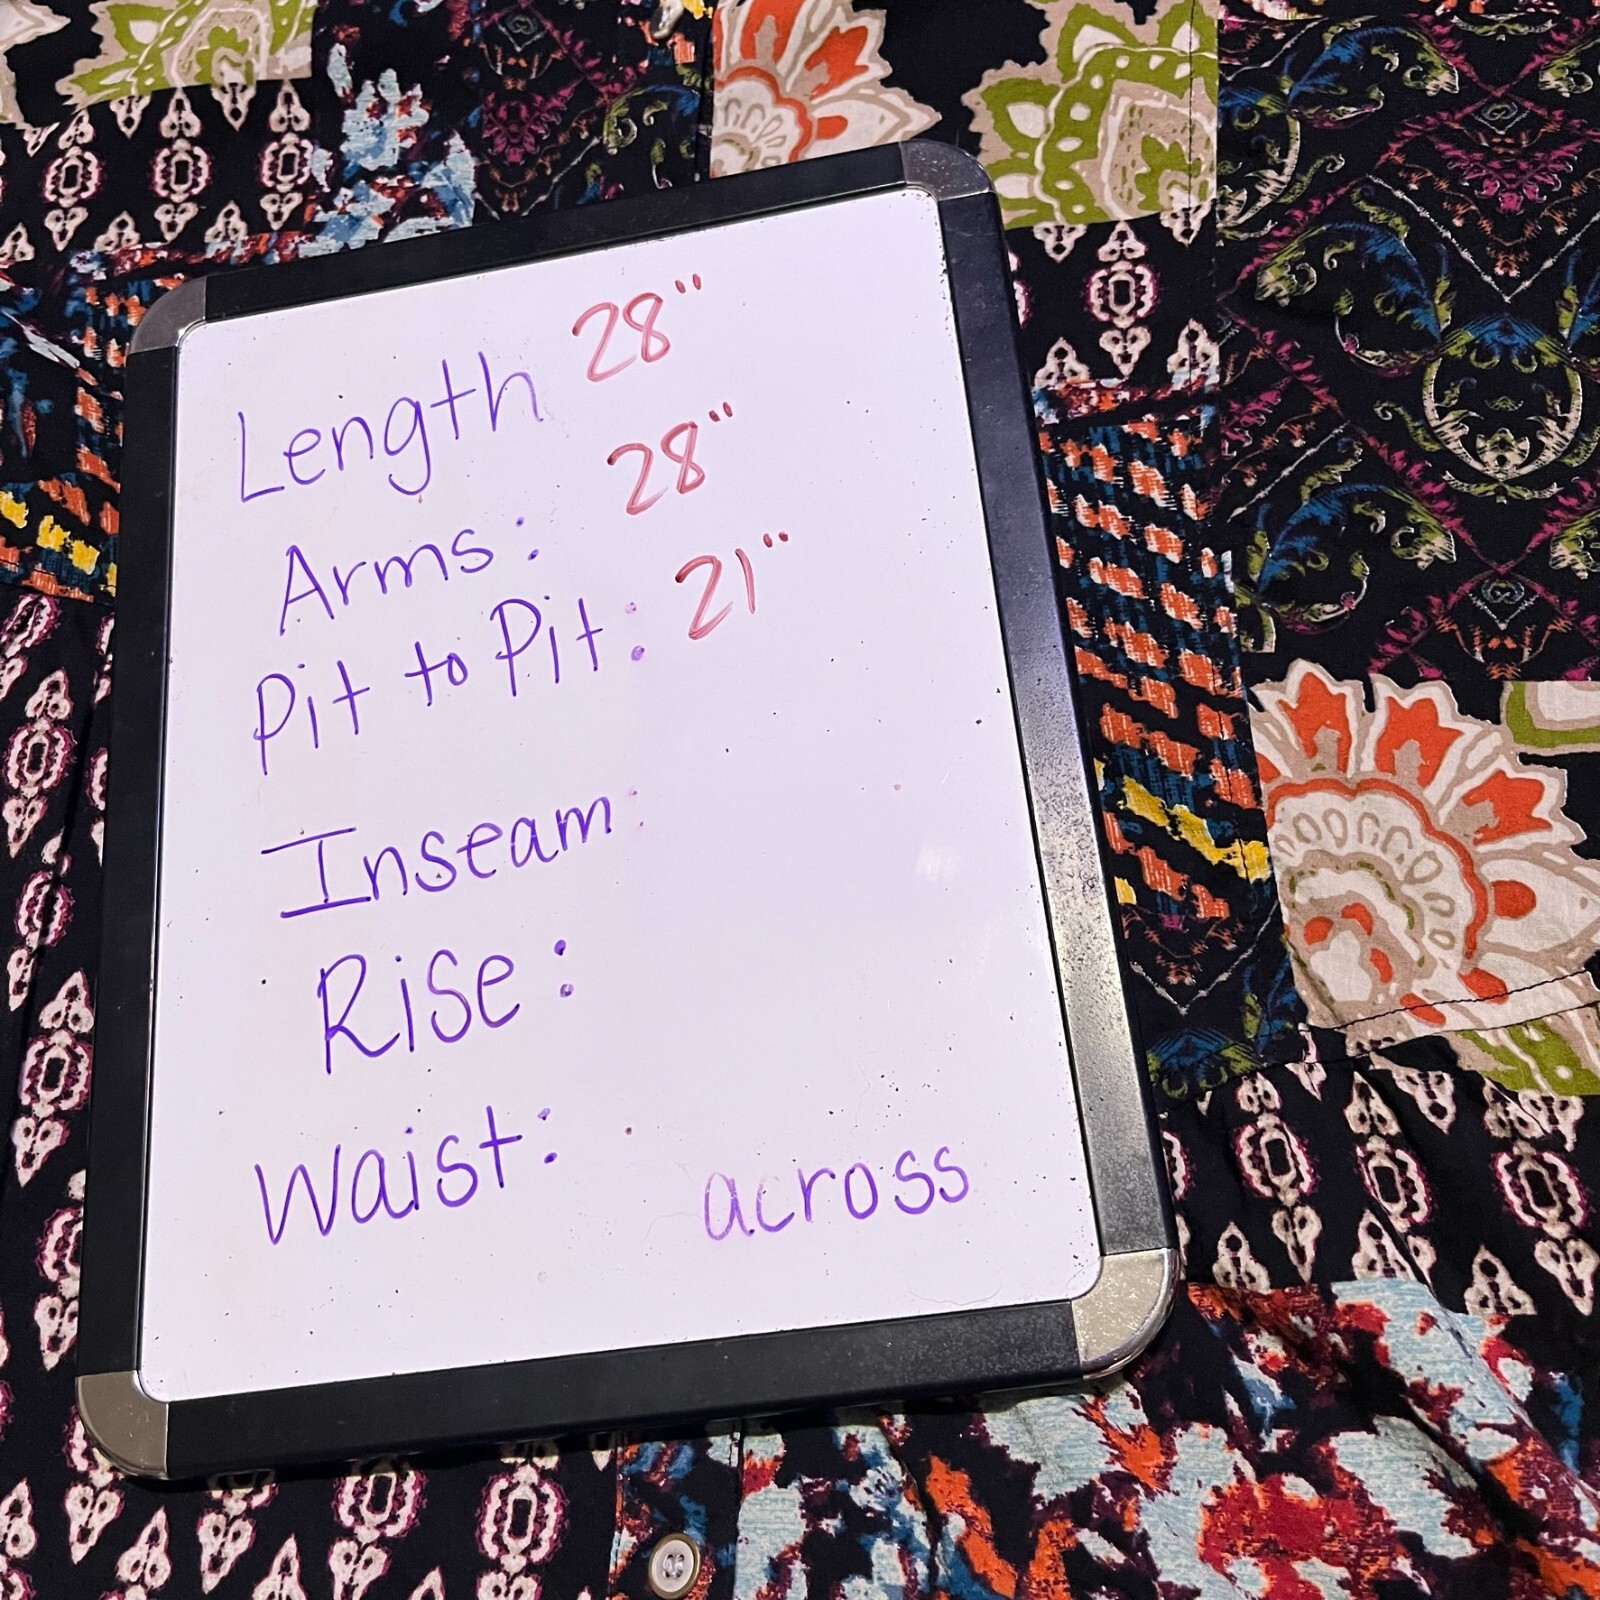 Length 28"
Arms: 28"
Pit to Pit: 21"
Inseam:
Rise:
Waist: across